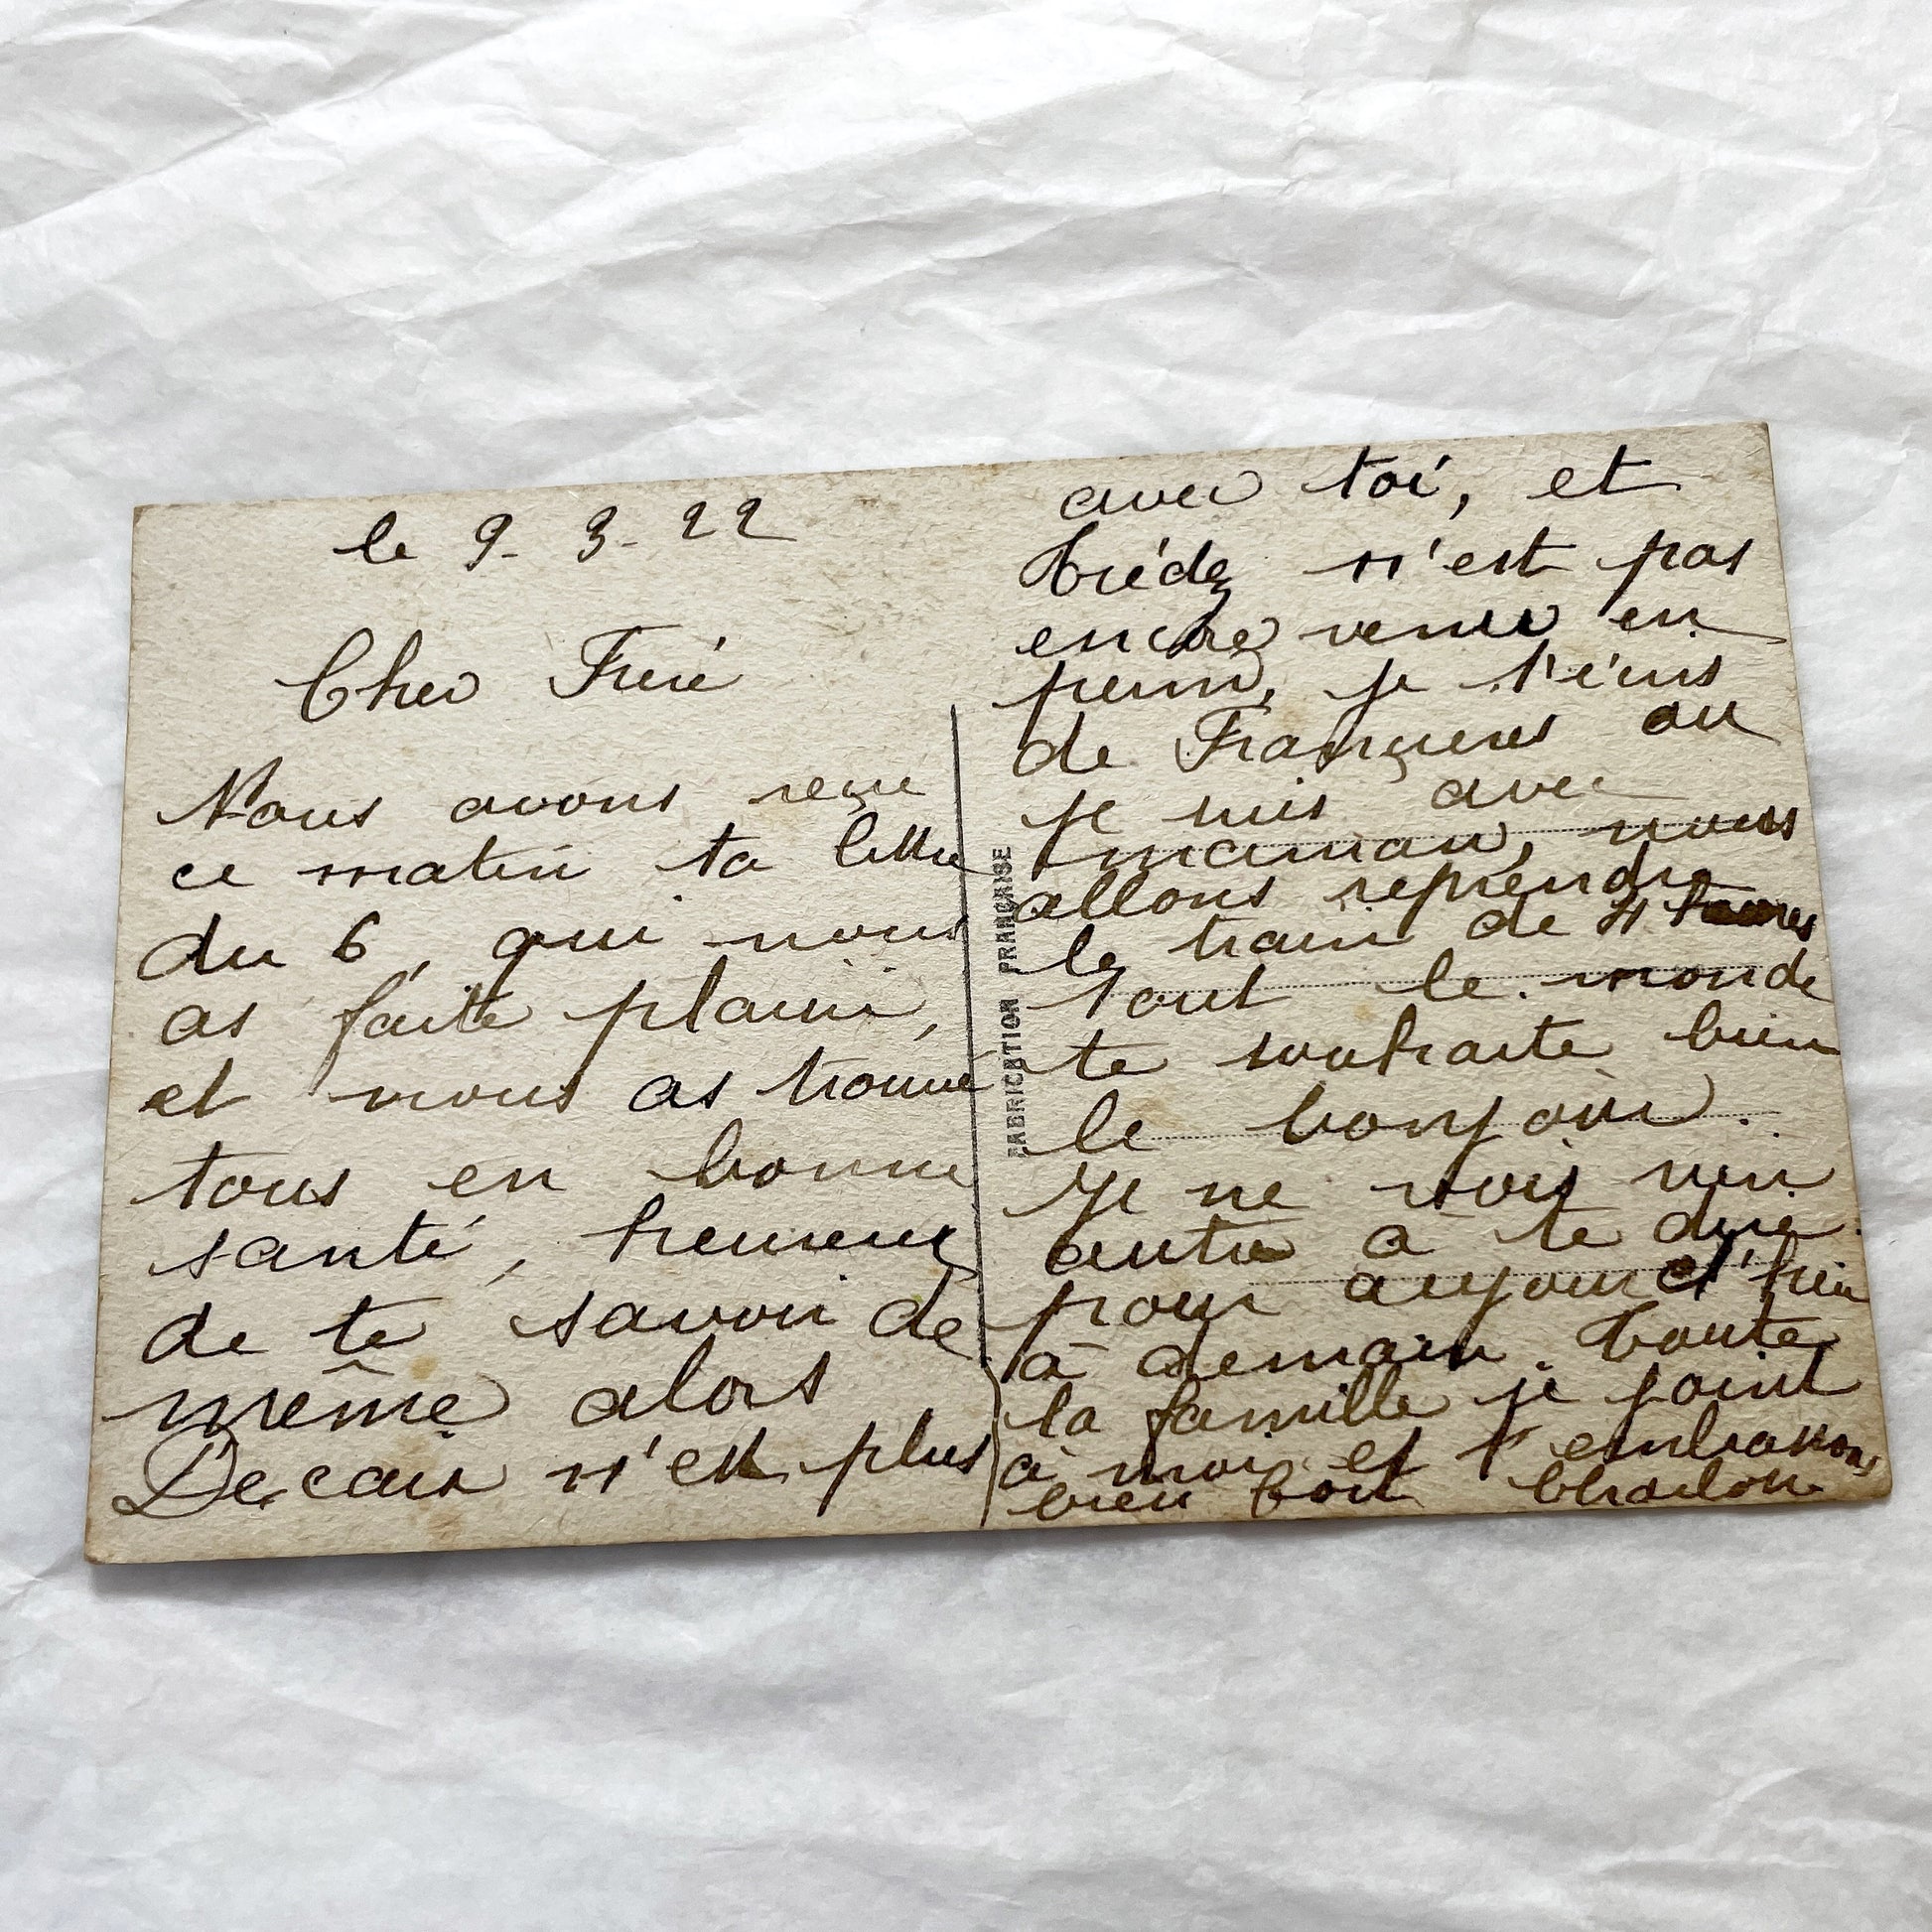 le 9-3-22
Cher Freré
Nous avons reçue
ce matin ta lettre
du 6, qui nous
as faite plaisir,
et nous as trouvé
tous en bonne
santé, heureux
de te savoir de
même alors
n'est plus
avec toi, et
n'est pas
encore venu en
perm, je t'écris
de ou
je suis avec
maman, nous
allons reprendre
le train de 4 heures
tout le monde
te souhaite bien
le bonjour.
Je ne vois rien
autre à te dire
pour aujourd'hui
à demain. Toute
la famille se joint
à moi et t'embrassons
bien fort
FABRICATION FRANÇAISE